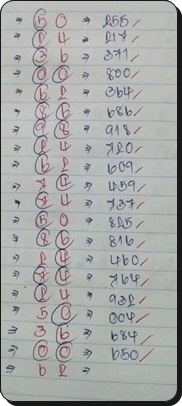 ⇒ 50 ⇒ 255/
⇒ 24 ⇒ 217/
⇒ 36 ⇒ 377/
⇒ 00 ⇒ 800/
⇒ 62 ⇒ 364/
⇒ 86 ⇒ 686/
⇒ 98 ⇒ 918/
⇒ 24 ⇒ 720/
⇒ 62 ⇒ 609/
⇒ 74 ⇒ 459/
⇒ 74 ⇒ 737/
⇒ 50 ⇒ 825/
⇒ 86 ⇒ 816/
⇒ 24 ⇒ 460/
⇒ 74 ⇒ 764/
⇒ 24 ⇒ 932/
⇒ 50 ⇒ 004/
⇒ 36 ⇒ 684/
⇒ 00 ⇒ 650/
⇒ 62 ⇒